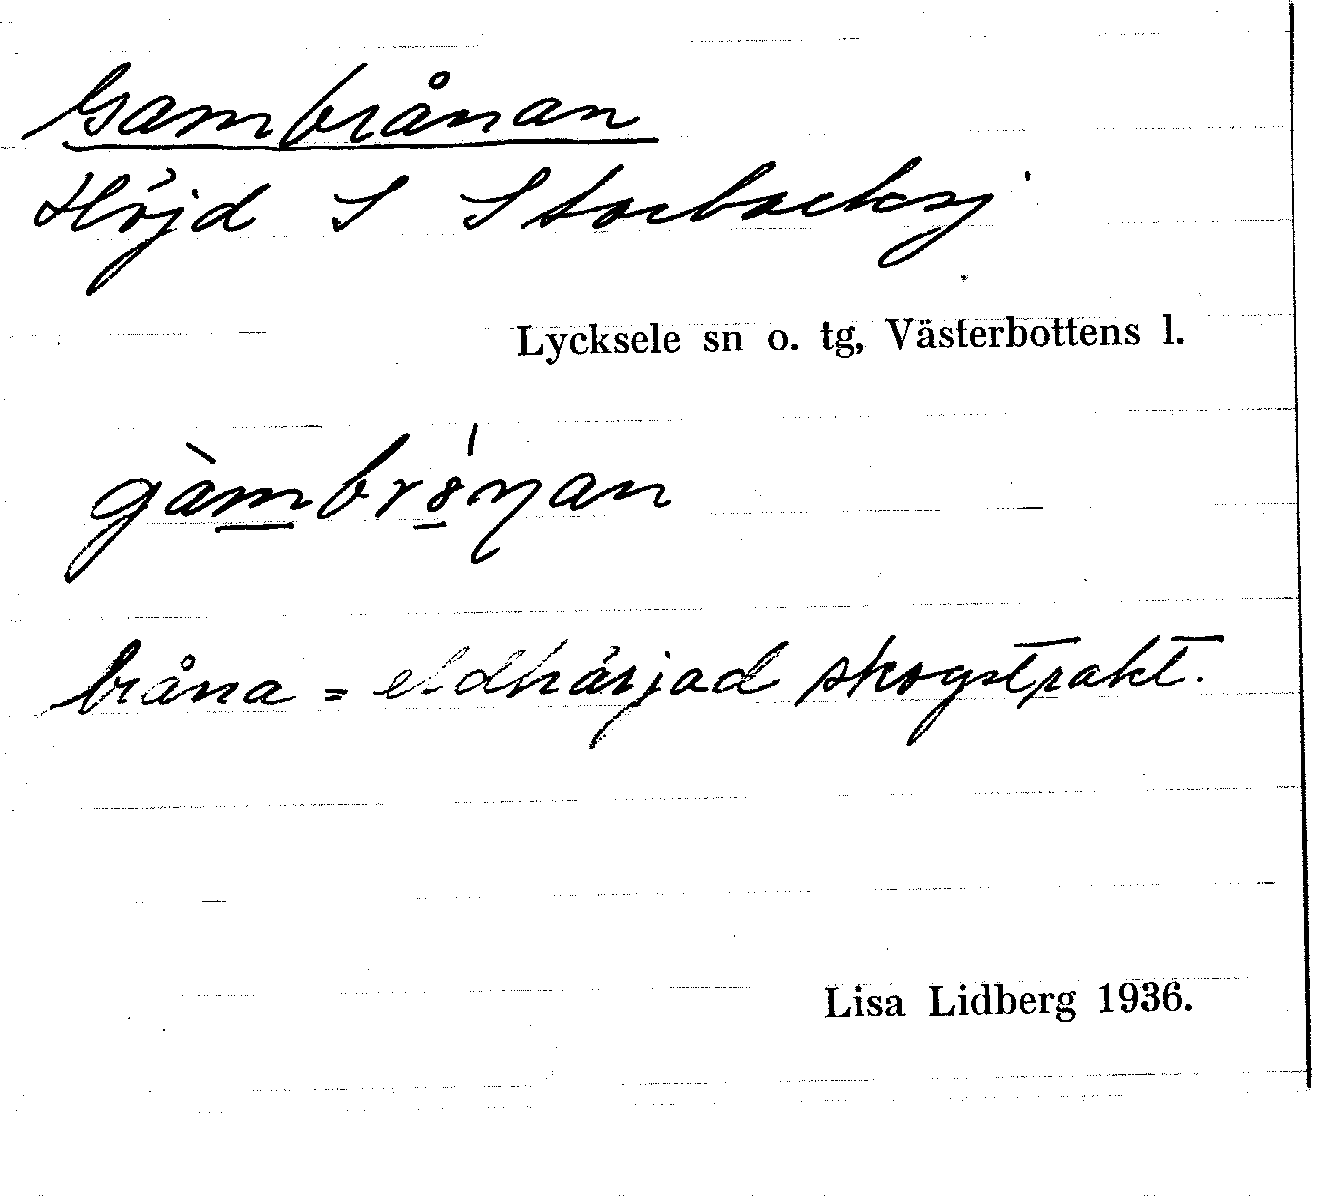 Gambrånan
Höjd S Storbocksj
Lycksele sn o. tg, Västerbottens l.
gàmbrȣ́ņan
bråna = eldhärjad skogstrakt.
Lisa Lidberg 1936.